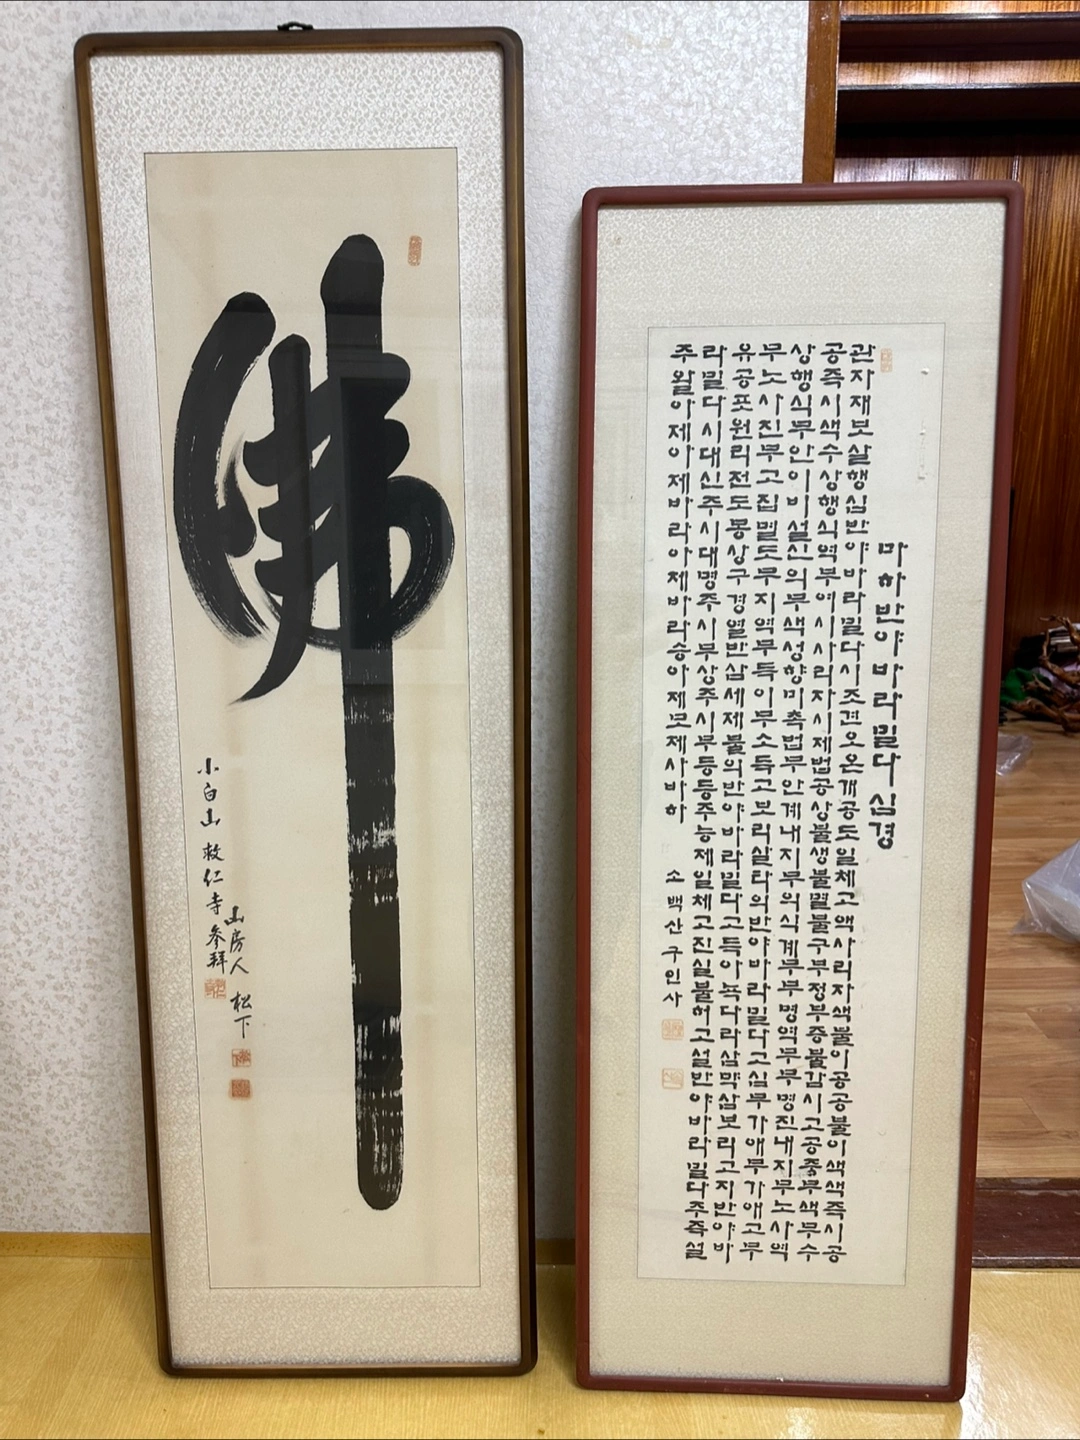 佛
小白山 救仁寺 參拜
山房人 松下
마하반야바라밀다심경
관자재보살행심반야바라밀다시조견오온개공도일체고액사리자색불이공공불이색색즉시공
공즉시색수상행식역부여시사리자시제법공상불생불멸불구부정부증불감시고공중무색무수
상행식무안이비설신의무색성향미촉법무안계내지무의식계무무명역무무명진내지무노사역
무노사진무고집멸도무지역무득이무소득고보리살타의반야바라밀다고심무가애무가애고무
유공포원리전도몽상구경열반삼세제불의반야바라밀다고득아뇩다라삼먁삼보리고지반야바
라밀다시대신주시대명주시무상주시무등등주능제일체고진실불허고설반야바라밀다주즉설
주왈아제아제바라아제바라승아제모제사바하 소백산구인사